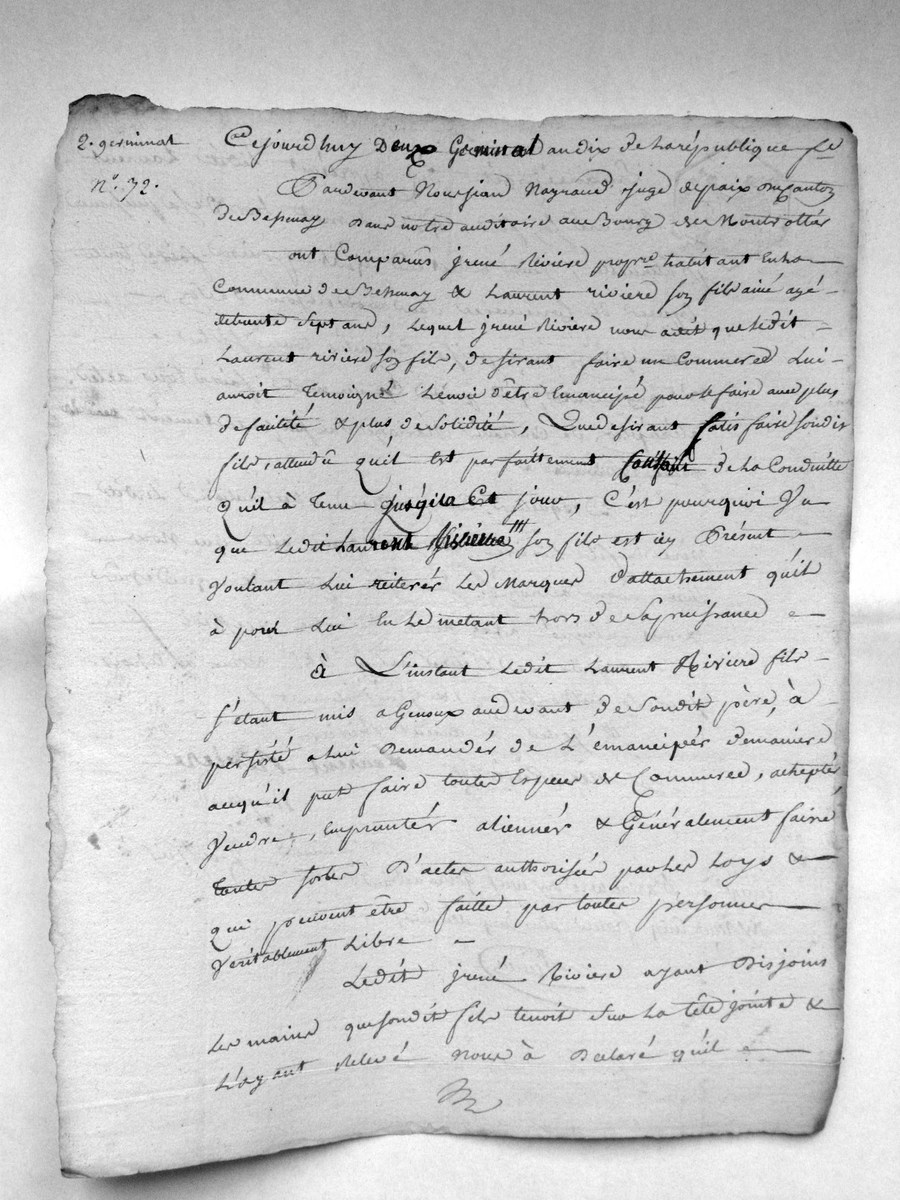 2. germinal
N.° 72.
Cejourdhuy Deux Germinal an dix de La république f.se
Pardevant Nous jean Nayraud juge depaix du Canton
de Bessenay Dans notre auditoire au Bourg de Montrottier
ont Comparus jrené Riviere propr.e habitant En La
Commune de Bessenay & Laurent riviere son fils ainé agé
detrente Sept ans, Lequel jrené Riviere nous adit que Ledit
Laurent riviere son fils, desirant faire un Commerce Lui
auroit Temoigné L'envie d'être Emancipé pour Le faire avec plus
de facilité & plus de Solidité, Que desirant satisfaire sondit
fils, attendu qu'il Est parfaittement satisfait de La Conduitte
Qu'il à Tenu jusqu'à Ce jour, C'est pourquoi Vu
que Ledit Laurent Riviere son fils est icy Présent
Voulant Lui reiterér Les Marques d'attachement qu'il
à pour Lui En Le metant hors de Sa puissance
à L'instant Ledit Laurent Riviere fils
s'étant mis a Genoux audevant de Sondit père, à
persisté a Lui Demandér de L'émancipér demaniere
acequ'il put faire toute Espece de Commerce, achептér
Vendre, Empruntér alienér & Généralement faire
toutes sortes D'actes authorisées par Les Loys &
qui peuvent être faitte par toutes personnes
Véritablement Libre
Ledit jrené Riviere ayant Disjoins
Les mains que sondit fils tenoit Sur La tête jointe &
L'ayant Relevé Nous à Déclaré qu'il